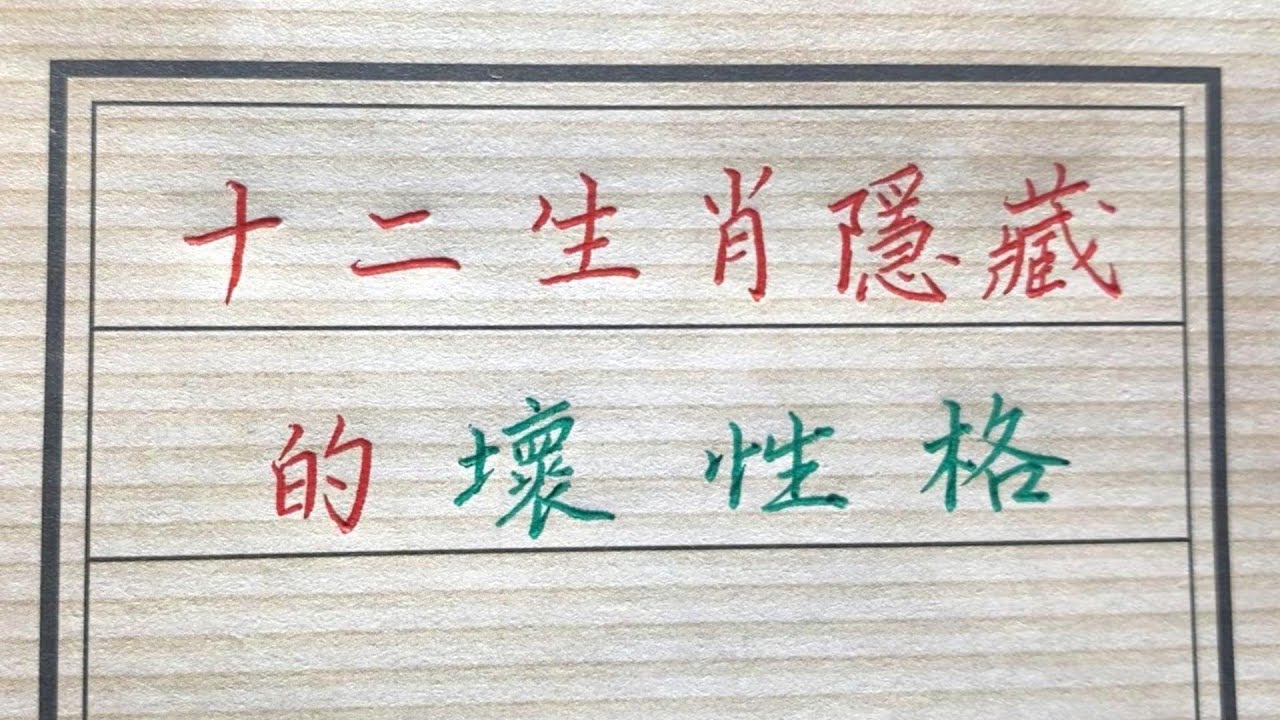 十二生肖隱藏
的壞性格